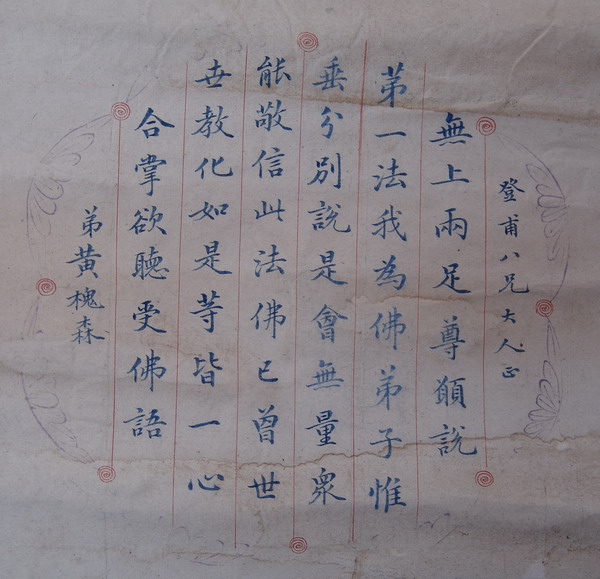 登甫八兄大人正
無上兩足尊願說
第一法我為佛弟子惟
垂分別說是會無量眾
能敬信此法佛已曾世
世教化如是等皆一心
合掌欲聽受佛語
弟黃槐森